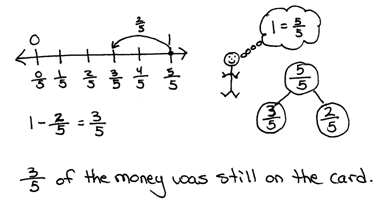 2/5
0 1
1 = 5/5
0/5 1/5 2/5 3/5 4/5 5/5
5/5
3/5 2/5
1 - 2/5 = 3/5
3/5 of the money was still on the card.